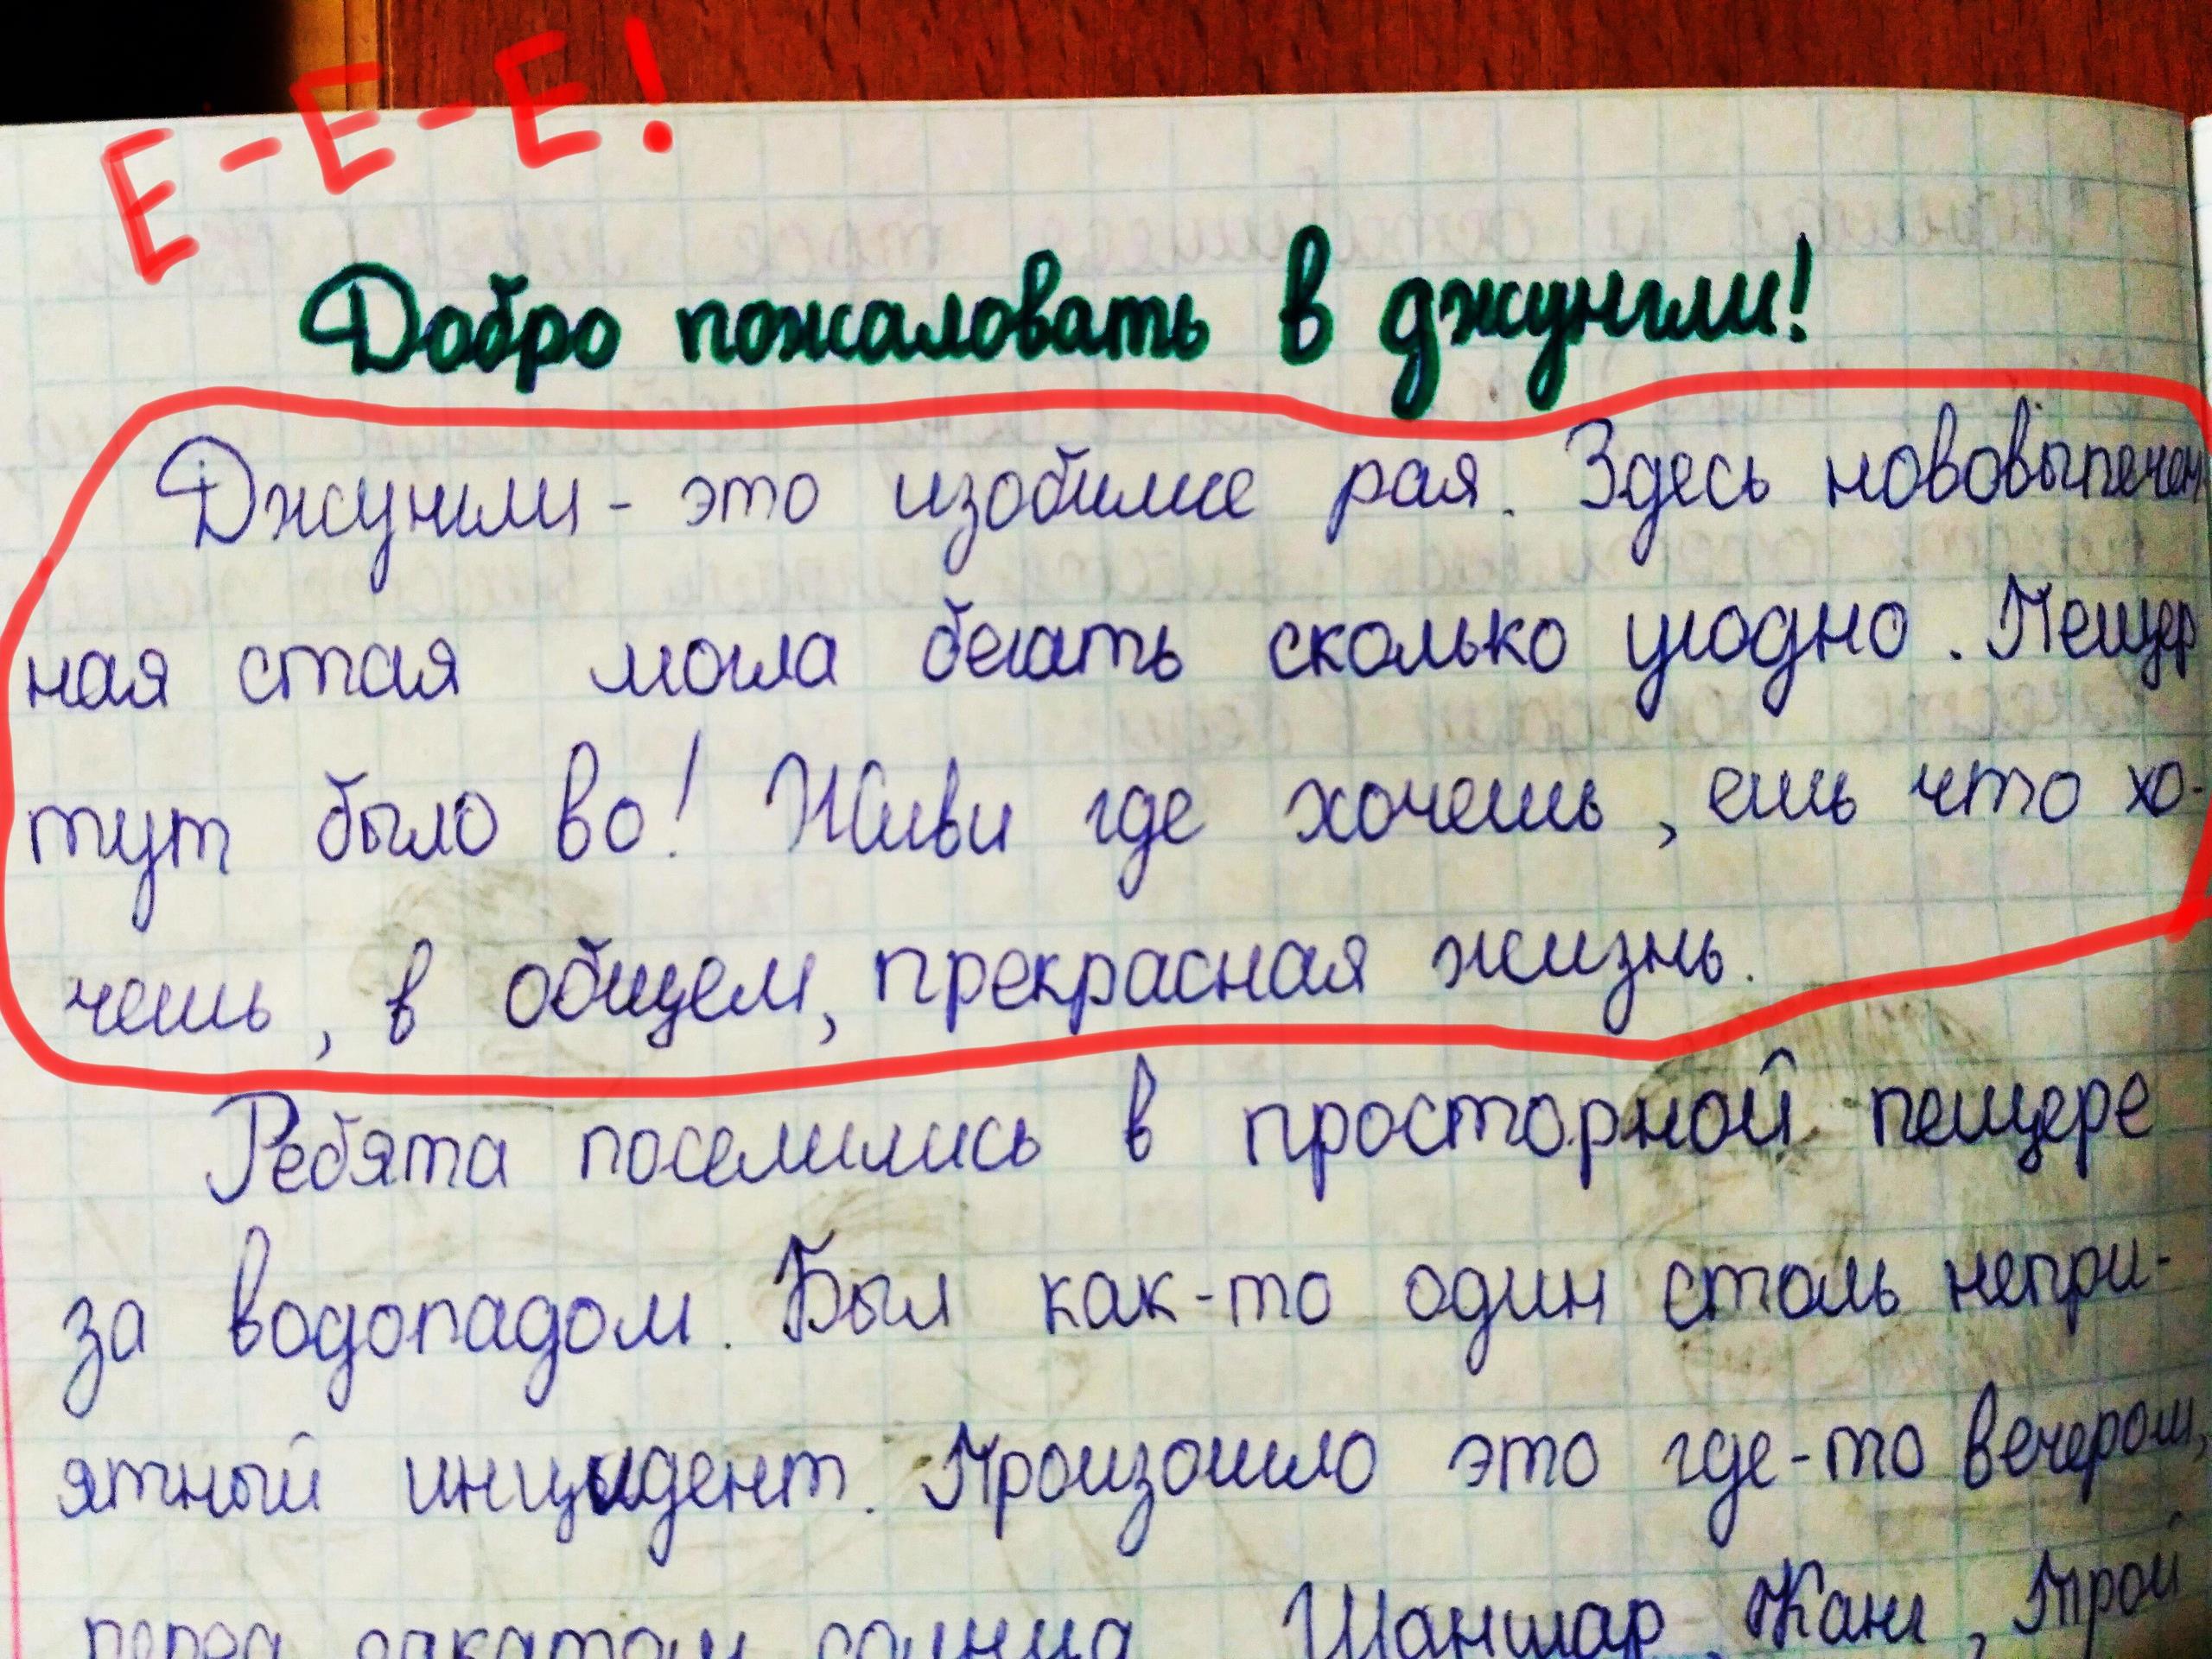 Е-Е-Е!
Добро пожаловать в джунгли!
Джунгли - это изобилие рая. Здесь нововыпечен
ная стая могла бегать сколько угодно. Пещер
тут было во! Живи где хочешь, ешь что хо-
чешь, в общем, прекрасная жизнь.
Ребята поселились в просторной пещере
за водопадом. Был как-то один столь непри-
ятный инцидент. Произошло это где-то вечером,
перед закатом солнца Шаншар, Канг, Трой